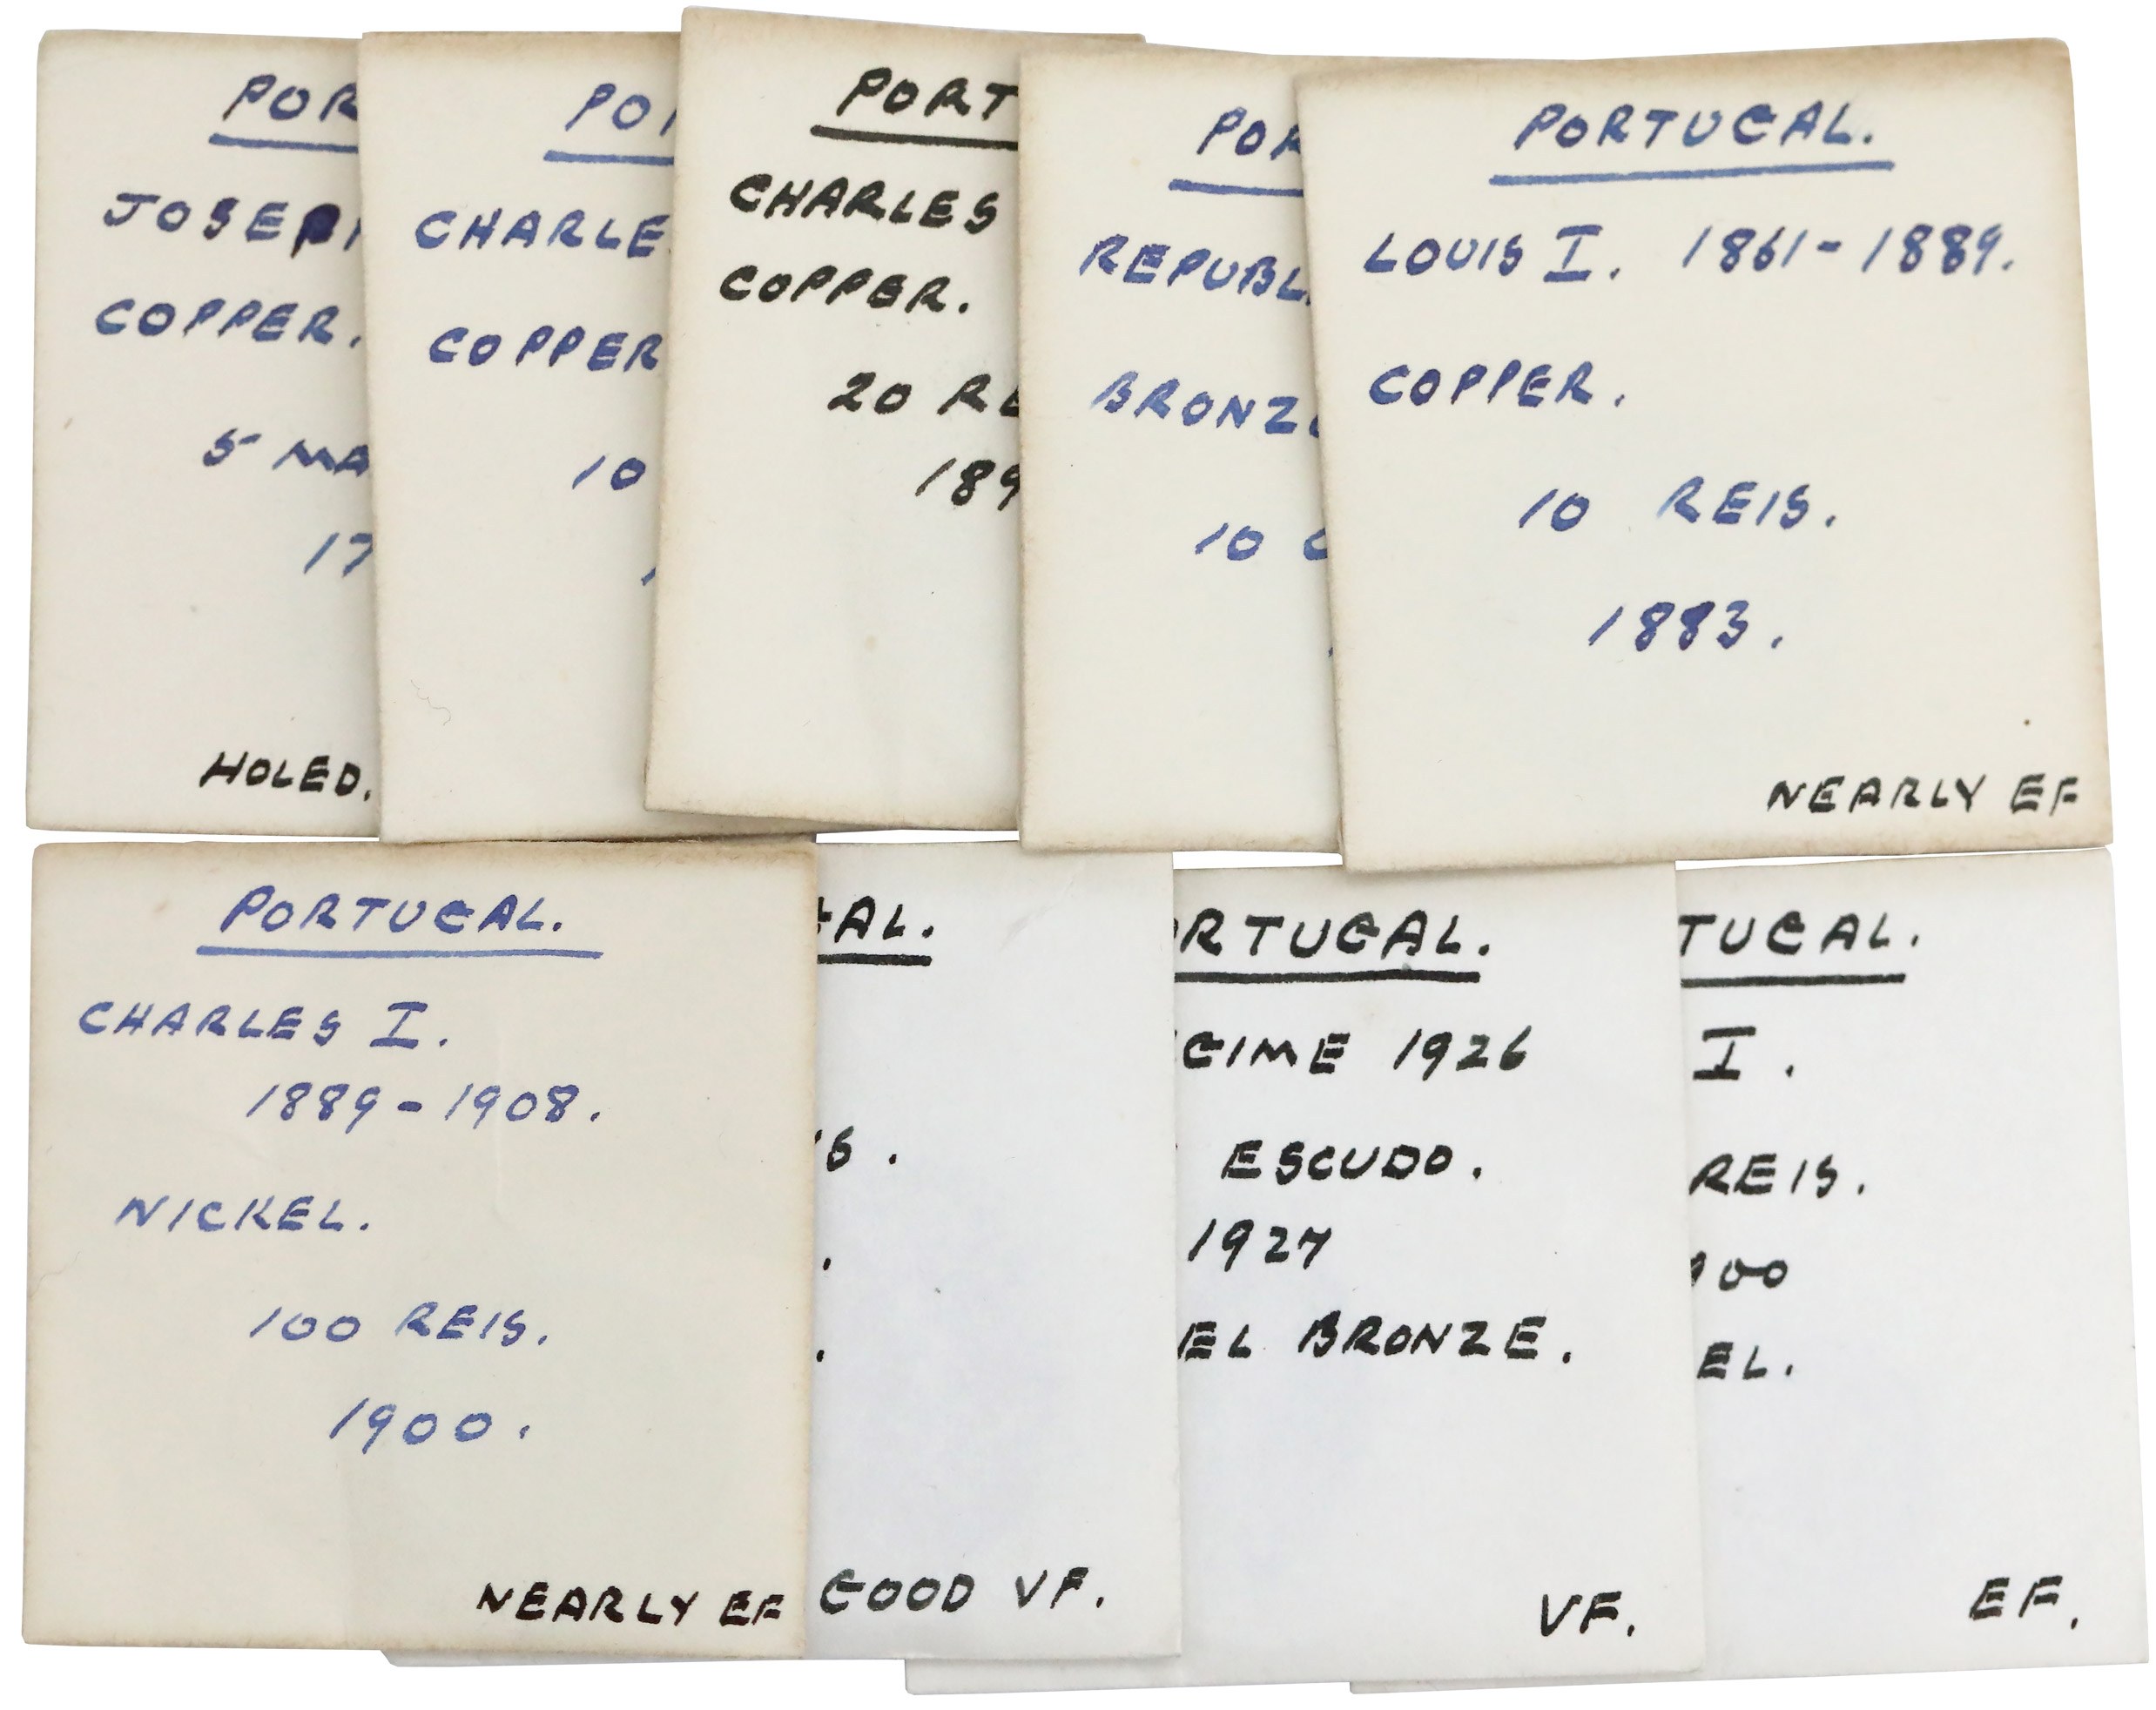 POR
JOSEPH
COPPER.
5 MA
17
HOLED.
PO
CHARLE
COPPER
10
PORT
CHARLES
COPPER.
20 RE
189
POR
REPUBL
BRONZ
10 C
PORTUGAL.
LOUIS I. 1861-1889.
COPPER.
10 REIS.
1883.
NEARLY EF
PORTUGAL.
CHARLES I.
1889-1908.
NICKEL.
100 REIS.
1900.
NEARLY EF
GAL.
IS.
.
.
GOOD VF.
RTUGAL.
GIME 1926
ESCUDO.
1927
EL BRONZE.
VF.
TUGAL.
I.
REIS.
00
EL.
EF.